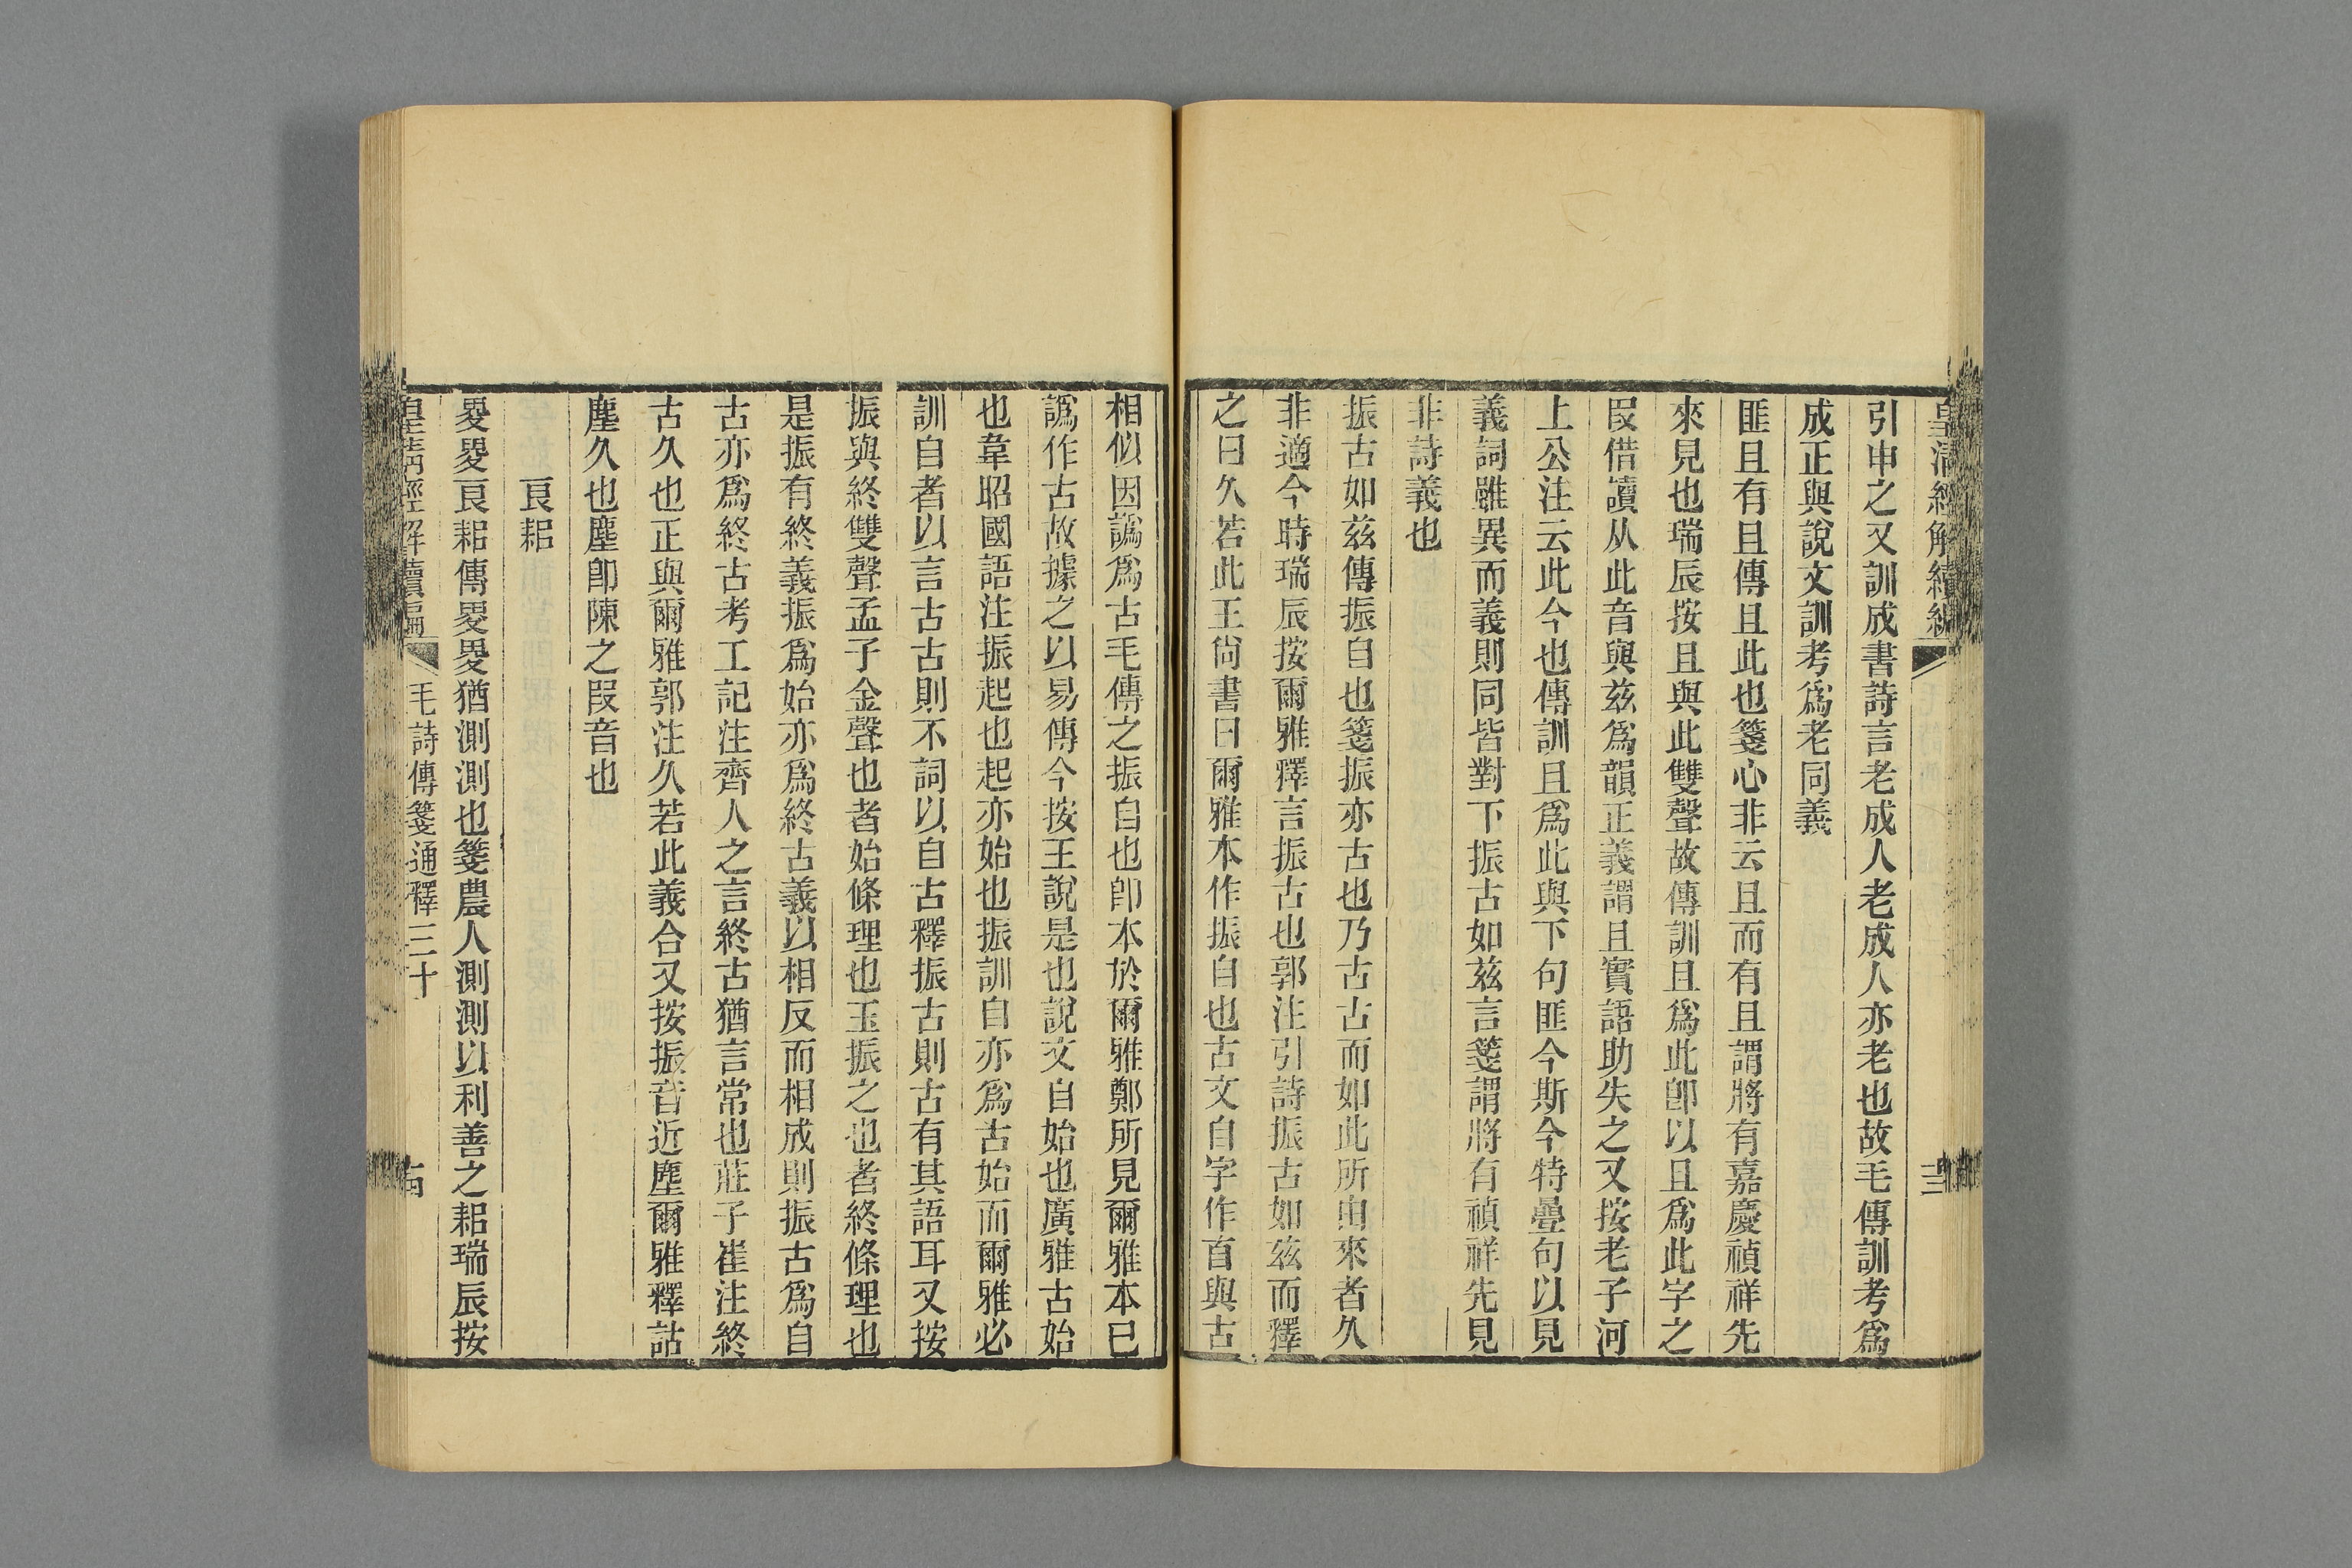 皇清經解續編
引申之又訓成書詩言老成人老成人亦老也故毛傳訓考爲
成正與說文訓考爲老同義
匪且有且傳且此也箋心非云且而有且謂將有嘉慶禎祥先
來見也瑞辰按且與此雙聲故傳訓且爲此卽以且爲此字之
叚借讀从此音與茲爲韻正義謂且實語助失之又按老子河
上公注云此今也傳訓且爲此與下句匪今斯今特疊句以見
義詞雖異而義則同皆對下振古如茲言箋謂將有禎祥先見
非詩義也
振古如茲傳振自也箋振亦古也乃古古而如此所由來者久
非適今時瑞辰按爾雅釋言振古也郭注引詩振古如茲而釋
之曰久若此王尙書曰爾雅本作振自也古文自字作𦣹與古
相似因譌爲古毛傳之振自也卽本於爾雅鄭所見爾雅本已
譌作古故據之以易傳今按王說是也說文自始也廣雅古始
也韋昭國語注振起也起亦始也振訓自亦爲古始而爾雅必
訓自者以言古古則不詞以自古釋振古則古有其語耳又按
振與終雙聲孟子金聲也者始條理也玉振之也者終條理也
是振有終義振爲始亦爲終古義以相反而相成則振古爲自
古亦爲終古考工記注齊人之言終古猶言常也莊子崔注終
古久也正與爾雅郭注久若此義合又按振音近塵爾雅釋詁
塵久也塵卽陳之叚音也
良耜
畟畟良耜傳畟畟猶測測也箋農人測測以利善之耜瑞辰按
皇清經解續編 毛詩傳箋通釋三十